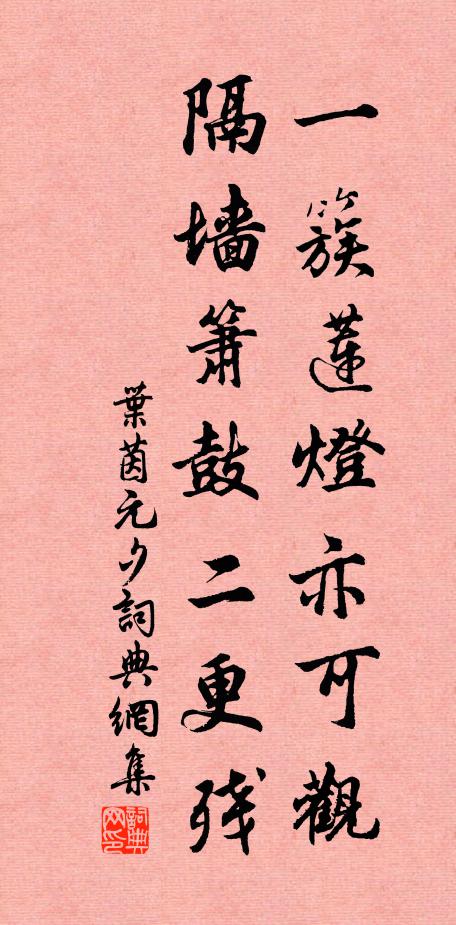 一簇蓮燈亦可觀
隔墙簫鼓二更残
葉茵元夕詞典網集
詞典网印